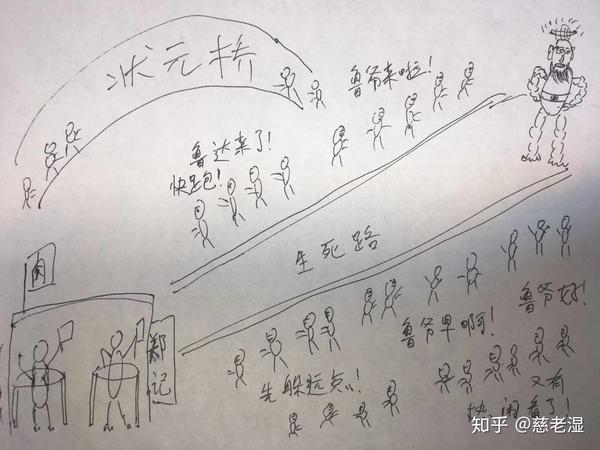 状元桥
鲁爷来啦！
鲁达来了！
快跑！
生死路
肉
郑记
鲁爷早啊！
鲁爷好！
先躲远点儿！
又有
热闹看了！
知乎 @慈老湿